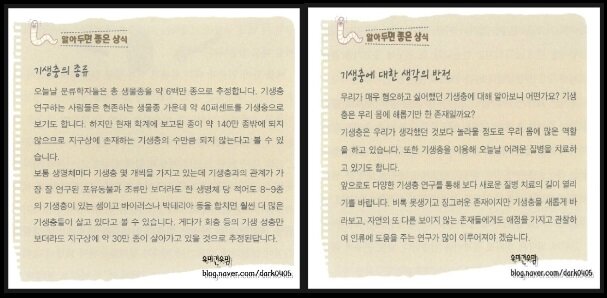 알아두면 좋은 상식
기생충의 종류
오늘날 분류학자들은 총 생물종을 약 6백만 종으로 추정합니다. 기생충
연구하는 사람들은 현존하는 생물종 가운데 약 40퍼센트를 기생충으로
보기도 합니다. 하지만 현재 학계에 보고된 종이 약 140만 종밖에 되지
않으므로 지구상에 존재하는 기생충의 수만큼 되지 않는다고 볼 수 있
습니다.
보통 생명체마다 기생충 몇 개씩을 가지고 있는데 기생충과의 관계가 가
장 잘 연구된 포유동물과 조류만 보더라도 한 생명체 당 적어도 8~9종
의 기생충이 있는 셈이고 바이러스나 박테리아 등을 합치면 훨씬 더 많은
기생충들이 살고 있다고 볼 수 있습니다. 게다가 회충 등의 기생 성충만
보더라도 지구상에 약 30만 종이 살아가고 있을 것으로 추정된답니다.
blog.naver.com/dark0405
알아두면 좋은 상식
기생충에 대한 생각의 반전
우리가 매우 혐오하고 싫어했던 기생충에 대해 알아보니 어떤가요? 기생
충은 우리 몸에 해롭기만 한 존재일까요?
기생충은 우리가 생각했던 것보다 놀라울 정도로 우리 몸에 많은 역할
을 하고 있습니다. 또한 기생충을 이용해 오늘날 어려운 질병을 치료하
고 있기도 합니다.
앞으로도 다양한 기생충 연구를 통해 보다 새로운 질병 치료의 길이 열리
기를 바랍니다. 비록 못생기고 징그러운 존재이지만 기생충을 새롭게 바
라보고, 자연의 또 다른 보이지 않는 존재들에게도 애정을 가지고 관찰하
여 인류에 도움을 주는 연구가 많이 이루어져야 겠습니다.
blog.naver.com/dark0405